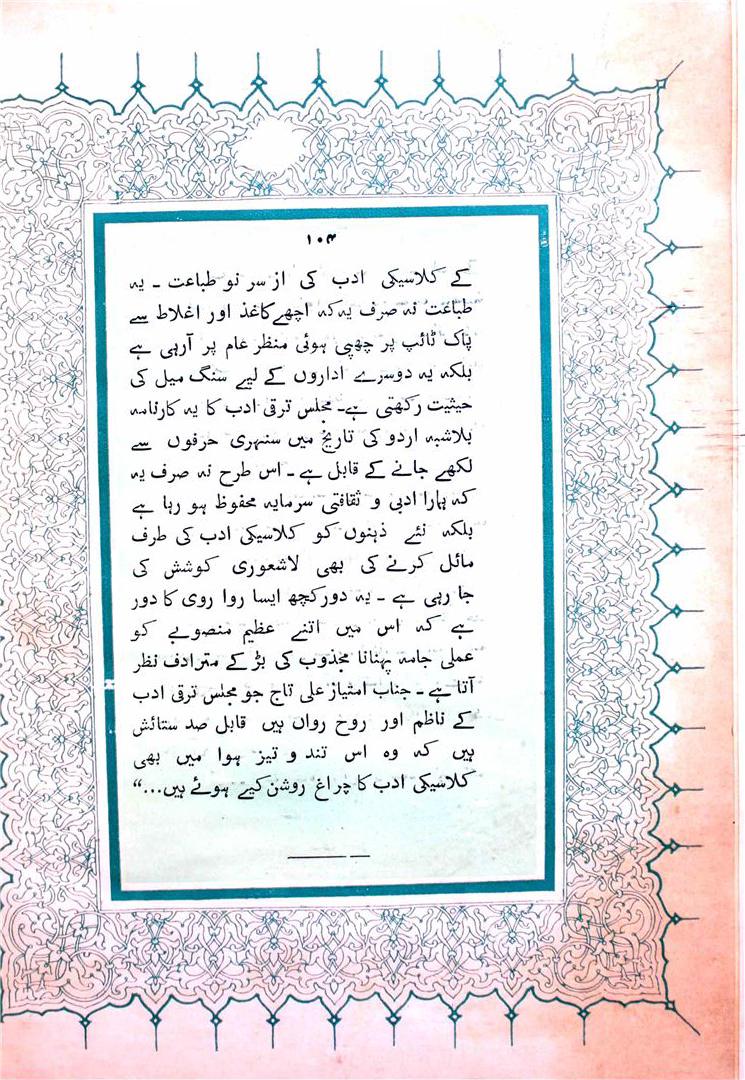 ۱۰۴
کے کلاسیکی ادب کی از سر نو طباعت ـ یہ
طباعت نہ صرف یہ کہ اچھے کاغذ اور اغلاط سے
پاک ٹائپ پر چھپی ہوئی منظر عام پر آرہی ہے
بلکہ یہ دوسرے اداروں کے لیے سنگ میل کی
حیثیت رکھتی ہے۔ مجلس ترقی ادب کا یہ کارنامہ
بلاشبہ اردو کی تاریخ میں سنہری حرفوں سے
لکھے جانے کے قابل ہے ـ اس طرح نہ صرف یہ
کہ ہمارا ادبی و ثقافتی سرمایہ محفوظ ہو رہا ہے
بلکہ نئے ذہنوں کو کلاسیکی ادب کی طرف
مائل کرنے کی بھی لاشعوری کوشش کی
جا رہی ہے ـ یہ دور کچھ ایسا روا روی کا دور
ہے کہ اس میں اتنے عظیم منصوبے کو
عملی جامہ پہنانا مجذوب کی بڑ کے مترادف نظر
آتا ہے ـ جناب امتیاز علی تاج جو مجلس ترقی ادب
کے ناظم اور روح رواں ہیں قابل صد ستائش
ہیں کہ وہ اس تند و تیز ہوا میں بھی
کلاسیکی ادب کا چراغ روشن کیے ہوئے ہیں...“